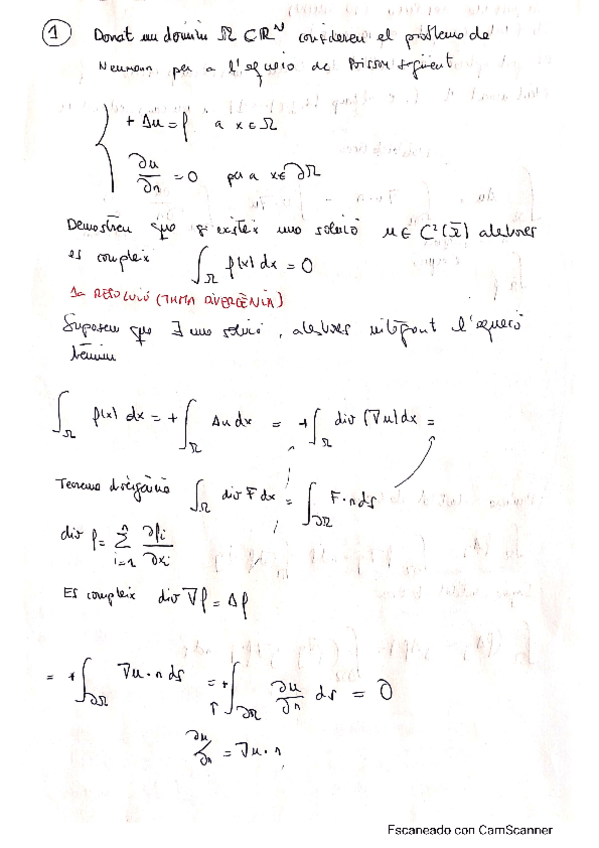 1 Donat un domini Ω ⊂ ℝᴺ considereu el problema de
Neumann per a l'equació de Poisson següent
{ + Δu = f a x ∈ Ω
∂u/∂n = 0 per a x ∈ ∂Ω
Demostreu que si existeix una solució u ∈ C²(Ω̄) aleshores
es compleix ∫_Ω f(x) dx = 0
1- RESOLUCIÓ (THMA DIVERGÈNCIA)
Suposem que ∃ una solució, aleshores integrant l'equació
tenim
∫_Ω f(x) dx = + ∫_Ω Δu dx = + ∫_Ω div (∇u) dx =
Teorema divergència ∫_Ω div F dx = ∫_∂Ω F · n ds
div f = Σ_{i=1}^n ∂f_i/∂x_i
Es compleix div ∇f = Δf
= + ∫_∂Ω ∇u · n ds = + ∫_∂Ω ∂u/∂n ds = 0
↑
∂u/∂n = ∇u · n
Escaneado con CamScanner